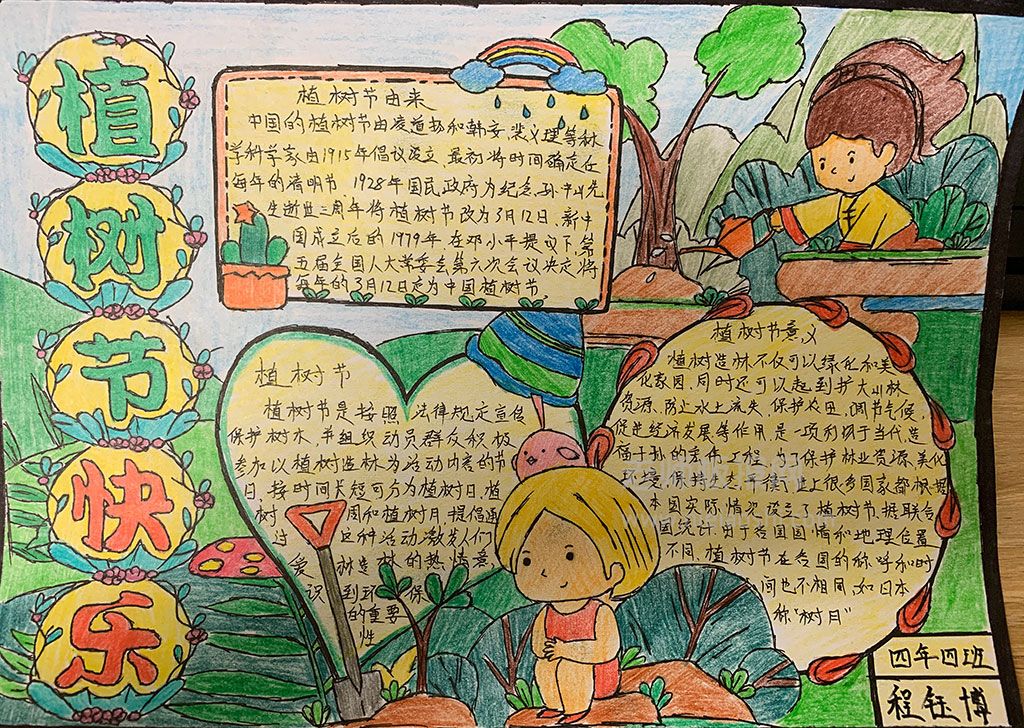 植
树
节
快
乐
植树节由来
中国的植树节由凌道扬和韩安、裴义理等林
学科学家由1915年倡议设立,最初将时间确定在
每年的清明节 1928年国民政府为纪念孙中山先
生逝世三周年将植树节改为3月12日、新中
国成立后的1979年,在邓小平提议下,第
五届全国人大常委会第六次会议决定将
每年的3月12日定为中国植树节
植树节
植树节是按照法律规定宣传
保护树木,并组织动员群众积极
参加以植树造林为活动内容的节
日,按时间长短可分为植树日,植
树 周和植树月提倡通
过 这种活动,激发人们
爱 林造林的热情意
识 到环 保
的重要
性
植树节意义
植树造林不仅可以绿化和美
化家园,同时还可以起到扩大山林
资源、防止水土流失、保护农田、调节气候、
促进经济发展等作用,是一项利于当代,造
福子孙的宏伟工程,为了保护林业资源,美化
环境,保持生态平衡,世上很多国家都根据
本国实际情况设立了植树节,据联合
国统计,由于各国国情和地理位置
不同,植树节在各国的称呼和时
间也不相同,如日本
称“树日”
四年四班
程钰博